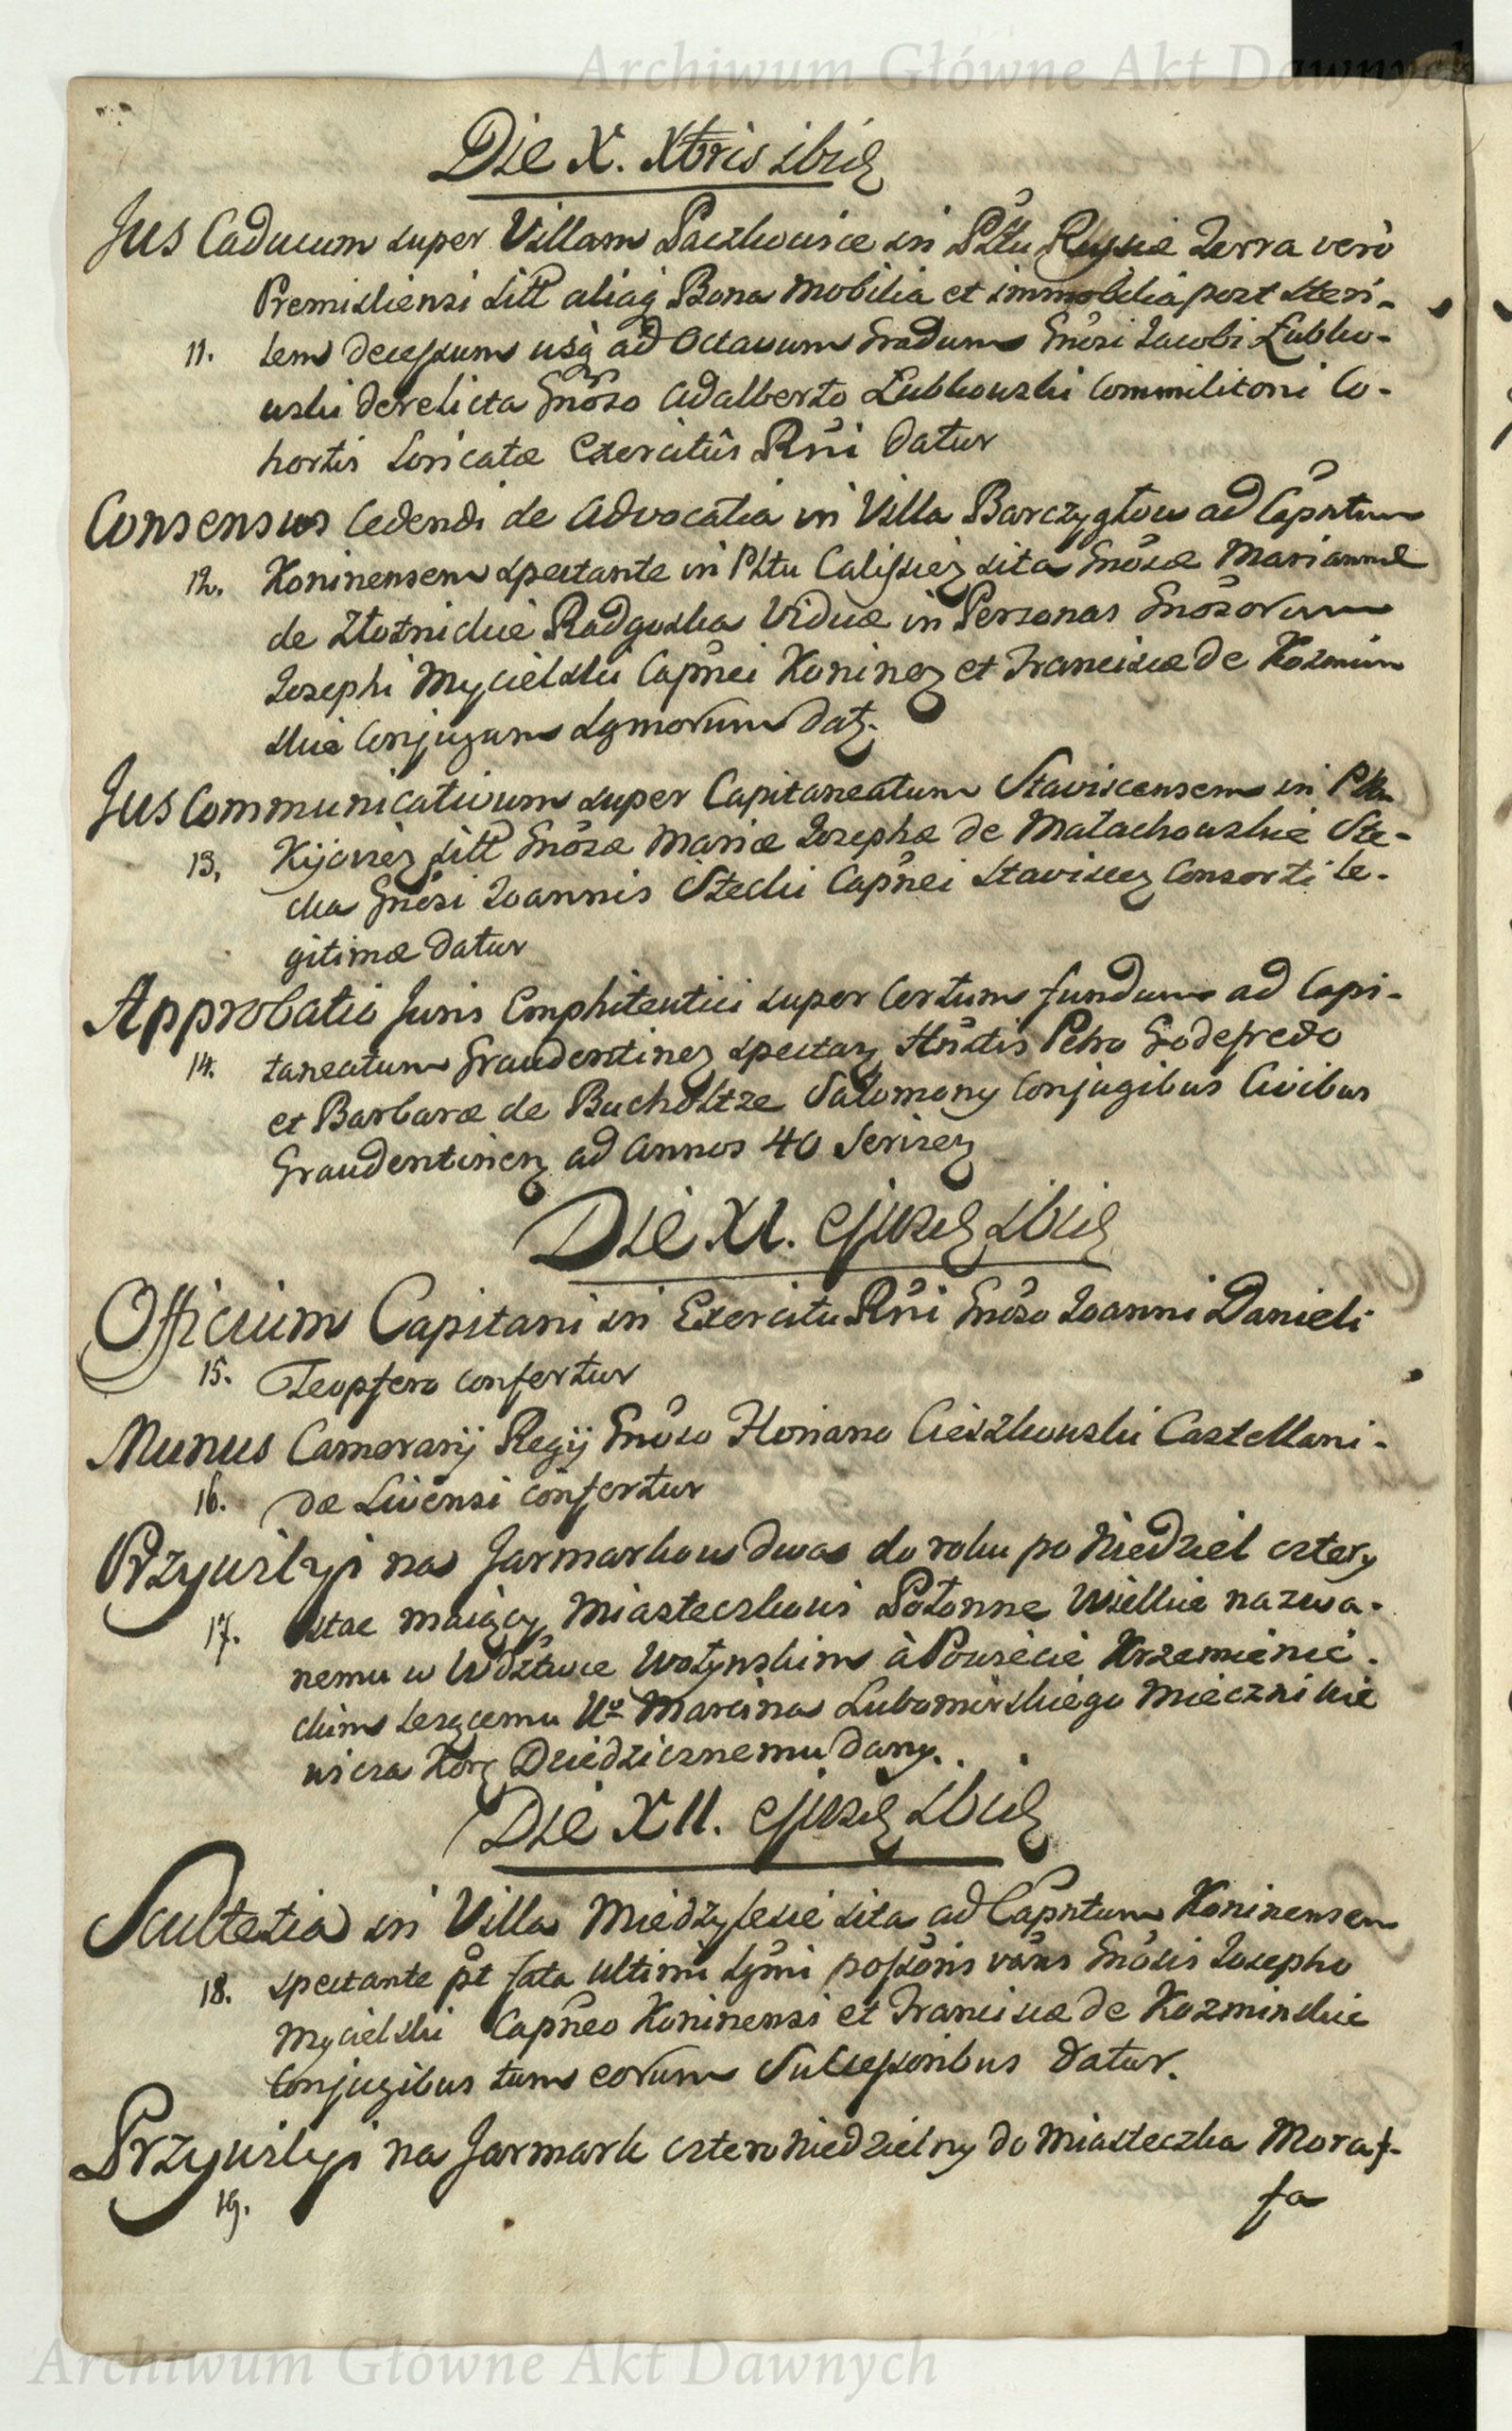 Archiwum Główne Akt Dawnych
Die X. Xbris ibid
Jus Caducum super Villam Paczkowice in Pltu Russiæ Terra verò
Premisliensi sitt aliaq Bona mobilia et immobilia post steri-
11. lem decessum usq ad Octavum Gradum Gnosi Jacobi Łubko-
wski derelicta Gnoso Adalberto Łubkowski Commilitoni Co-
hortis Loricatæ Exercitûs Rni datur
Consensus cedendi de Advocatia in Villa Barczygłow ad Capntum
12. Koninensem spectante in Pltu Calissien sita Gnosæ Mariannæ
de Złotnickie Radgoska Viduæ in Personas Gnosorum
Josephi Mycielski Capnei Koninen et Franciscæ de Kozmin
skie Conjugum Lgmorum dat.
Jus Communicativum super Capitaneatum Staviscensem in Pltu
13, Kijovien sitt Gnosæ Mariæ Josephæ de Małachowskie Ste-
cka Gnosi Joannis Stecki Capnei Staviscen Consorti le-
gitimæ datur
Approbatio Juris Emphiteutici super certum fundum ad Capi-
14. taneatum Graudentinen spectan Hnstis Petro Godefredo
et Barbaræ de Bucholtze Salomony Conjugibus Civibus
Graudentinen ad annos 40 Servien
Die XI. ejusd ibid
Officium Capitani in Exercitu Rni Gnoso Joanni Danieli
15. Teopfero confertur
Munus Camerarij Regij Gnoso Floriano Cieszkowski Castellani-
16. dæ Livensi confertur
Przywiley na Jarmarkow dwa do roku po Niedziel cztery
17. stac maiący Miasteczkowi Połonne Wielkie nazwa-
nemu w Wdztwie Wołynskim à Powiecie Krzemienic-
ckim lezącemu Uo Marcina Lubomirskiego Mieczni kie
wicza Kor Dziedzicznemu dany.
Die XII. ejusd ibid
Scultetia in Villa Miedzylesie sita ad Capntum Koninensem
18. spectante pt fata ultimi Lgmi possoris vans Gnosis Josepho
Mycielski Capneo Koninensi et Franciscæ de Kozminskie
Conjugibus tum eorum Successoribus datur.
Przywiley na Jarmark cztero Niedzielny do Miasteczka Moraf-
19.
fa
Archiwum Główne Akt Dawnych